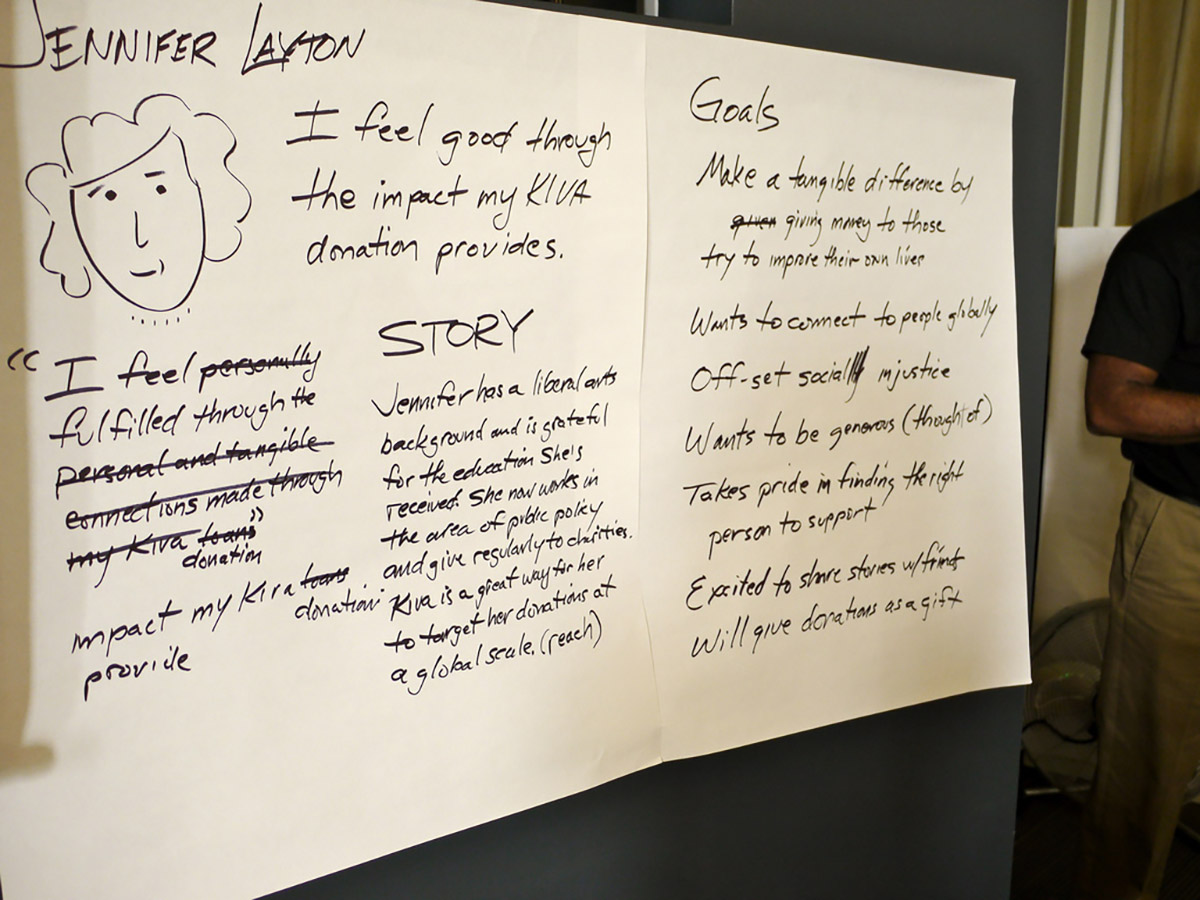 JENNIFER LAYTON
I feel good through
the impact my KIVA
donation provides.
"I feel personally
fulfilled through the
personal and tangible
connections made through
my Kiva loans"
donation
impact my Kiva loans
donation
provide
STORY
Jennifer has a liberal arts
background and is grateful
for the education She's
received. She now works in
the area of public policy
and give regularly to charities.
Kiva is a great way for her
to target her donations at
a global scale. (reach)
Goals
Make a tangible difference by
given giving money to those
try to improve their own lives
Wants to connect to people globally
Off-set social injustice
Wants to be generous (thought of)
Takes pride in finding the right
person to support
Excited to share stories w/ friends
Will give donations as a gift